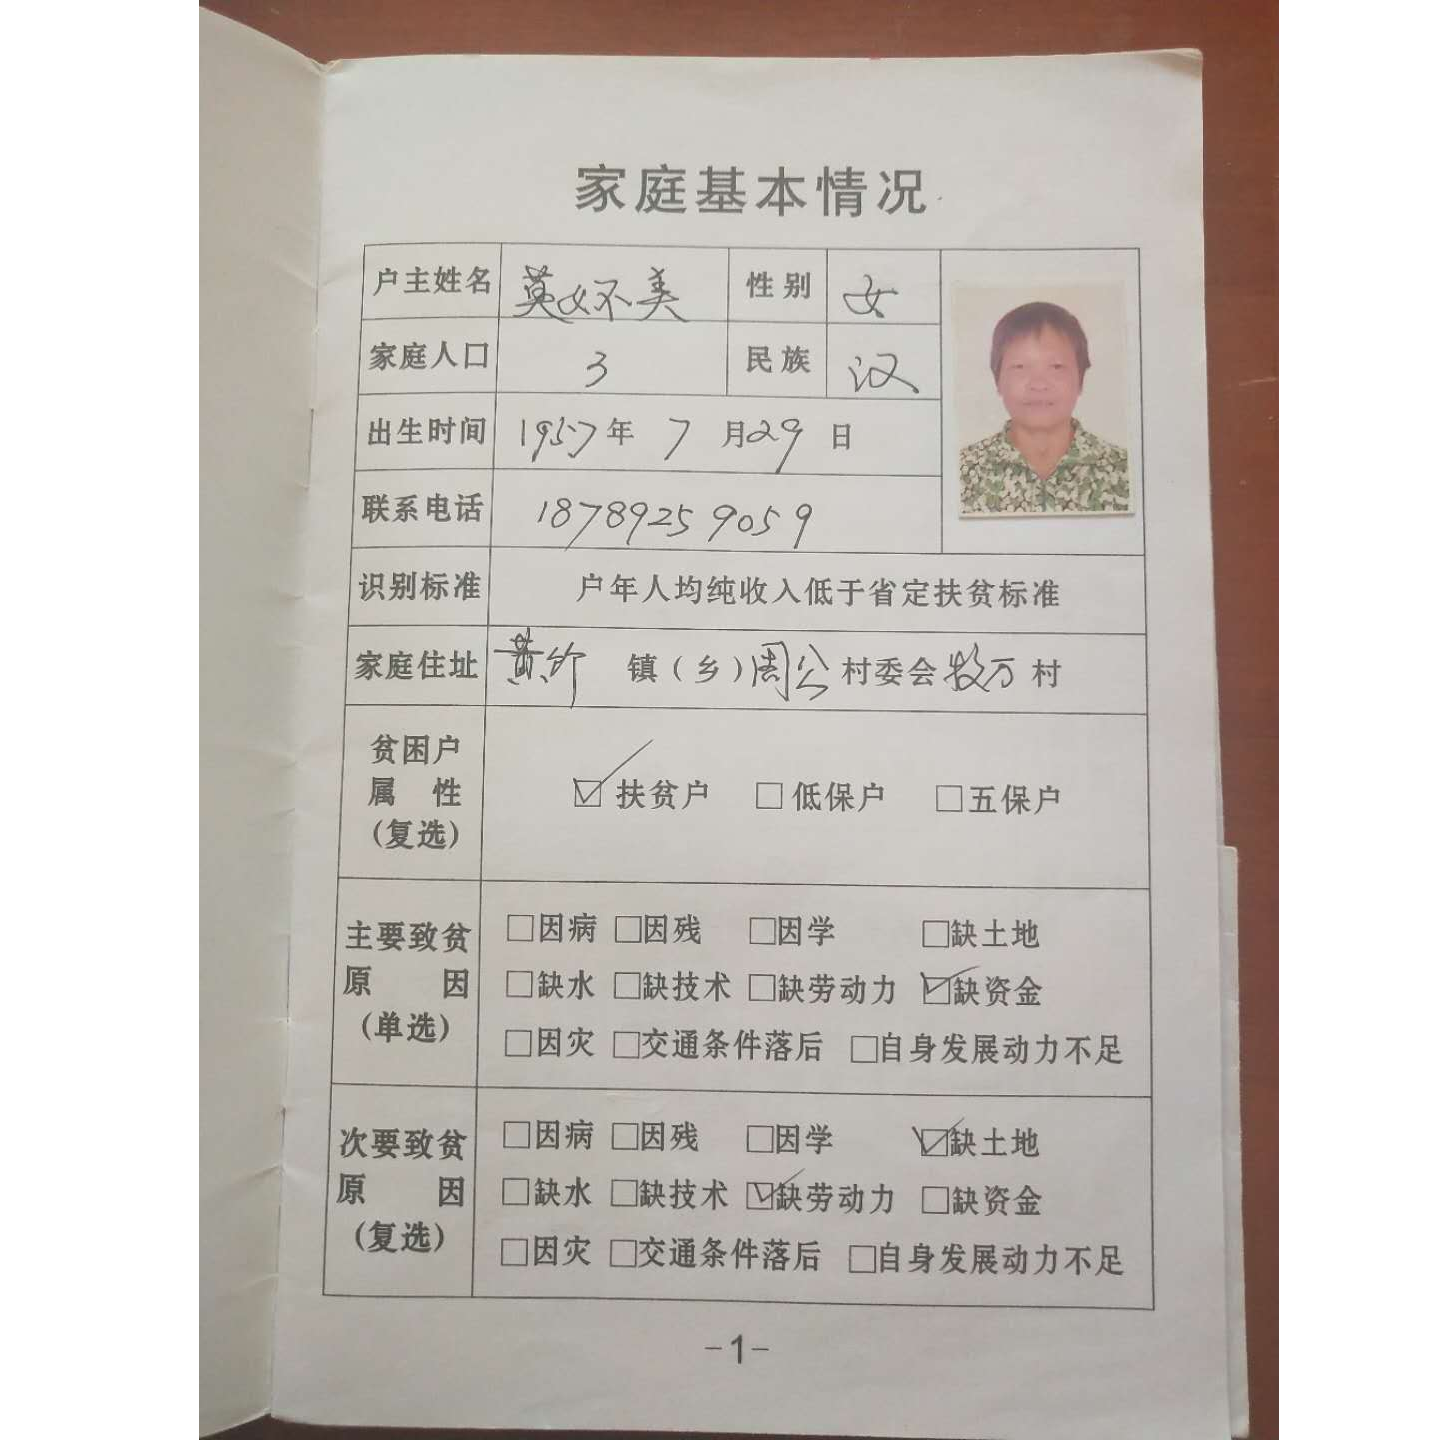 家庭基本情况
户主姓名 美 性别 女
家庭人口 3 民族 汉
出生时间 1957年 7 月29 日
联系电话 18789259059
识别标准 户年人均纯收入低于省定扶贫标准
家庭住址 黄竹 镇(乡)周公村委会 村
贫困户 属性 (复选) ☑扶贫户 □低保户 □五保户
主要致贫 □因病 □因残 □因学 □缺土地
原因 □缺水 □缺技术 □缺劳动力 ☑缺资金
(单选) □因灾 □交通条件落后 □自身发展动力不足
次要致贫 □因病 □因残 □因学 ☑缺土地
原因 □缺水 □缺技术 ☑缺劳动力 □缺资金
(复选) □因灾 □交通条件落后 □自身发展动力不足
-1-